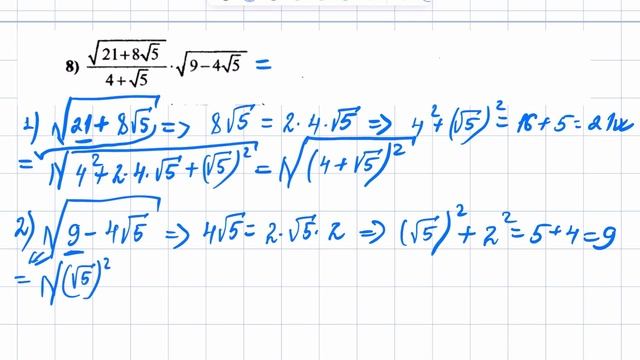 8) \frac{\sqrt{21+8\sqrt{5}}}{4+\sqrt{5}} \cdot \sqrt{9-4\sqrt{5}} =
1) √(21 + 8√5) => 8√5 = 2·4·√5 => 4² + (√5)² = 16 + 5 = 21
= √(4² + 2·4·√5 + (√5)²) = √((4 + √5)²)
2) √(9 - 4√5) => 4√5 = 2·√5·2 => (√5)² + 2² = 5 + 4 = 9
= √((√5)²